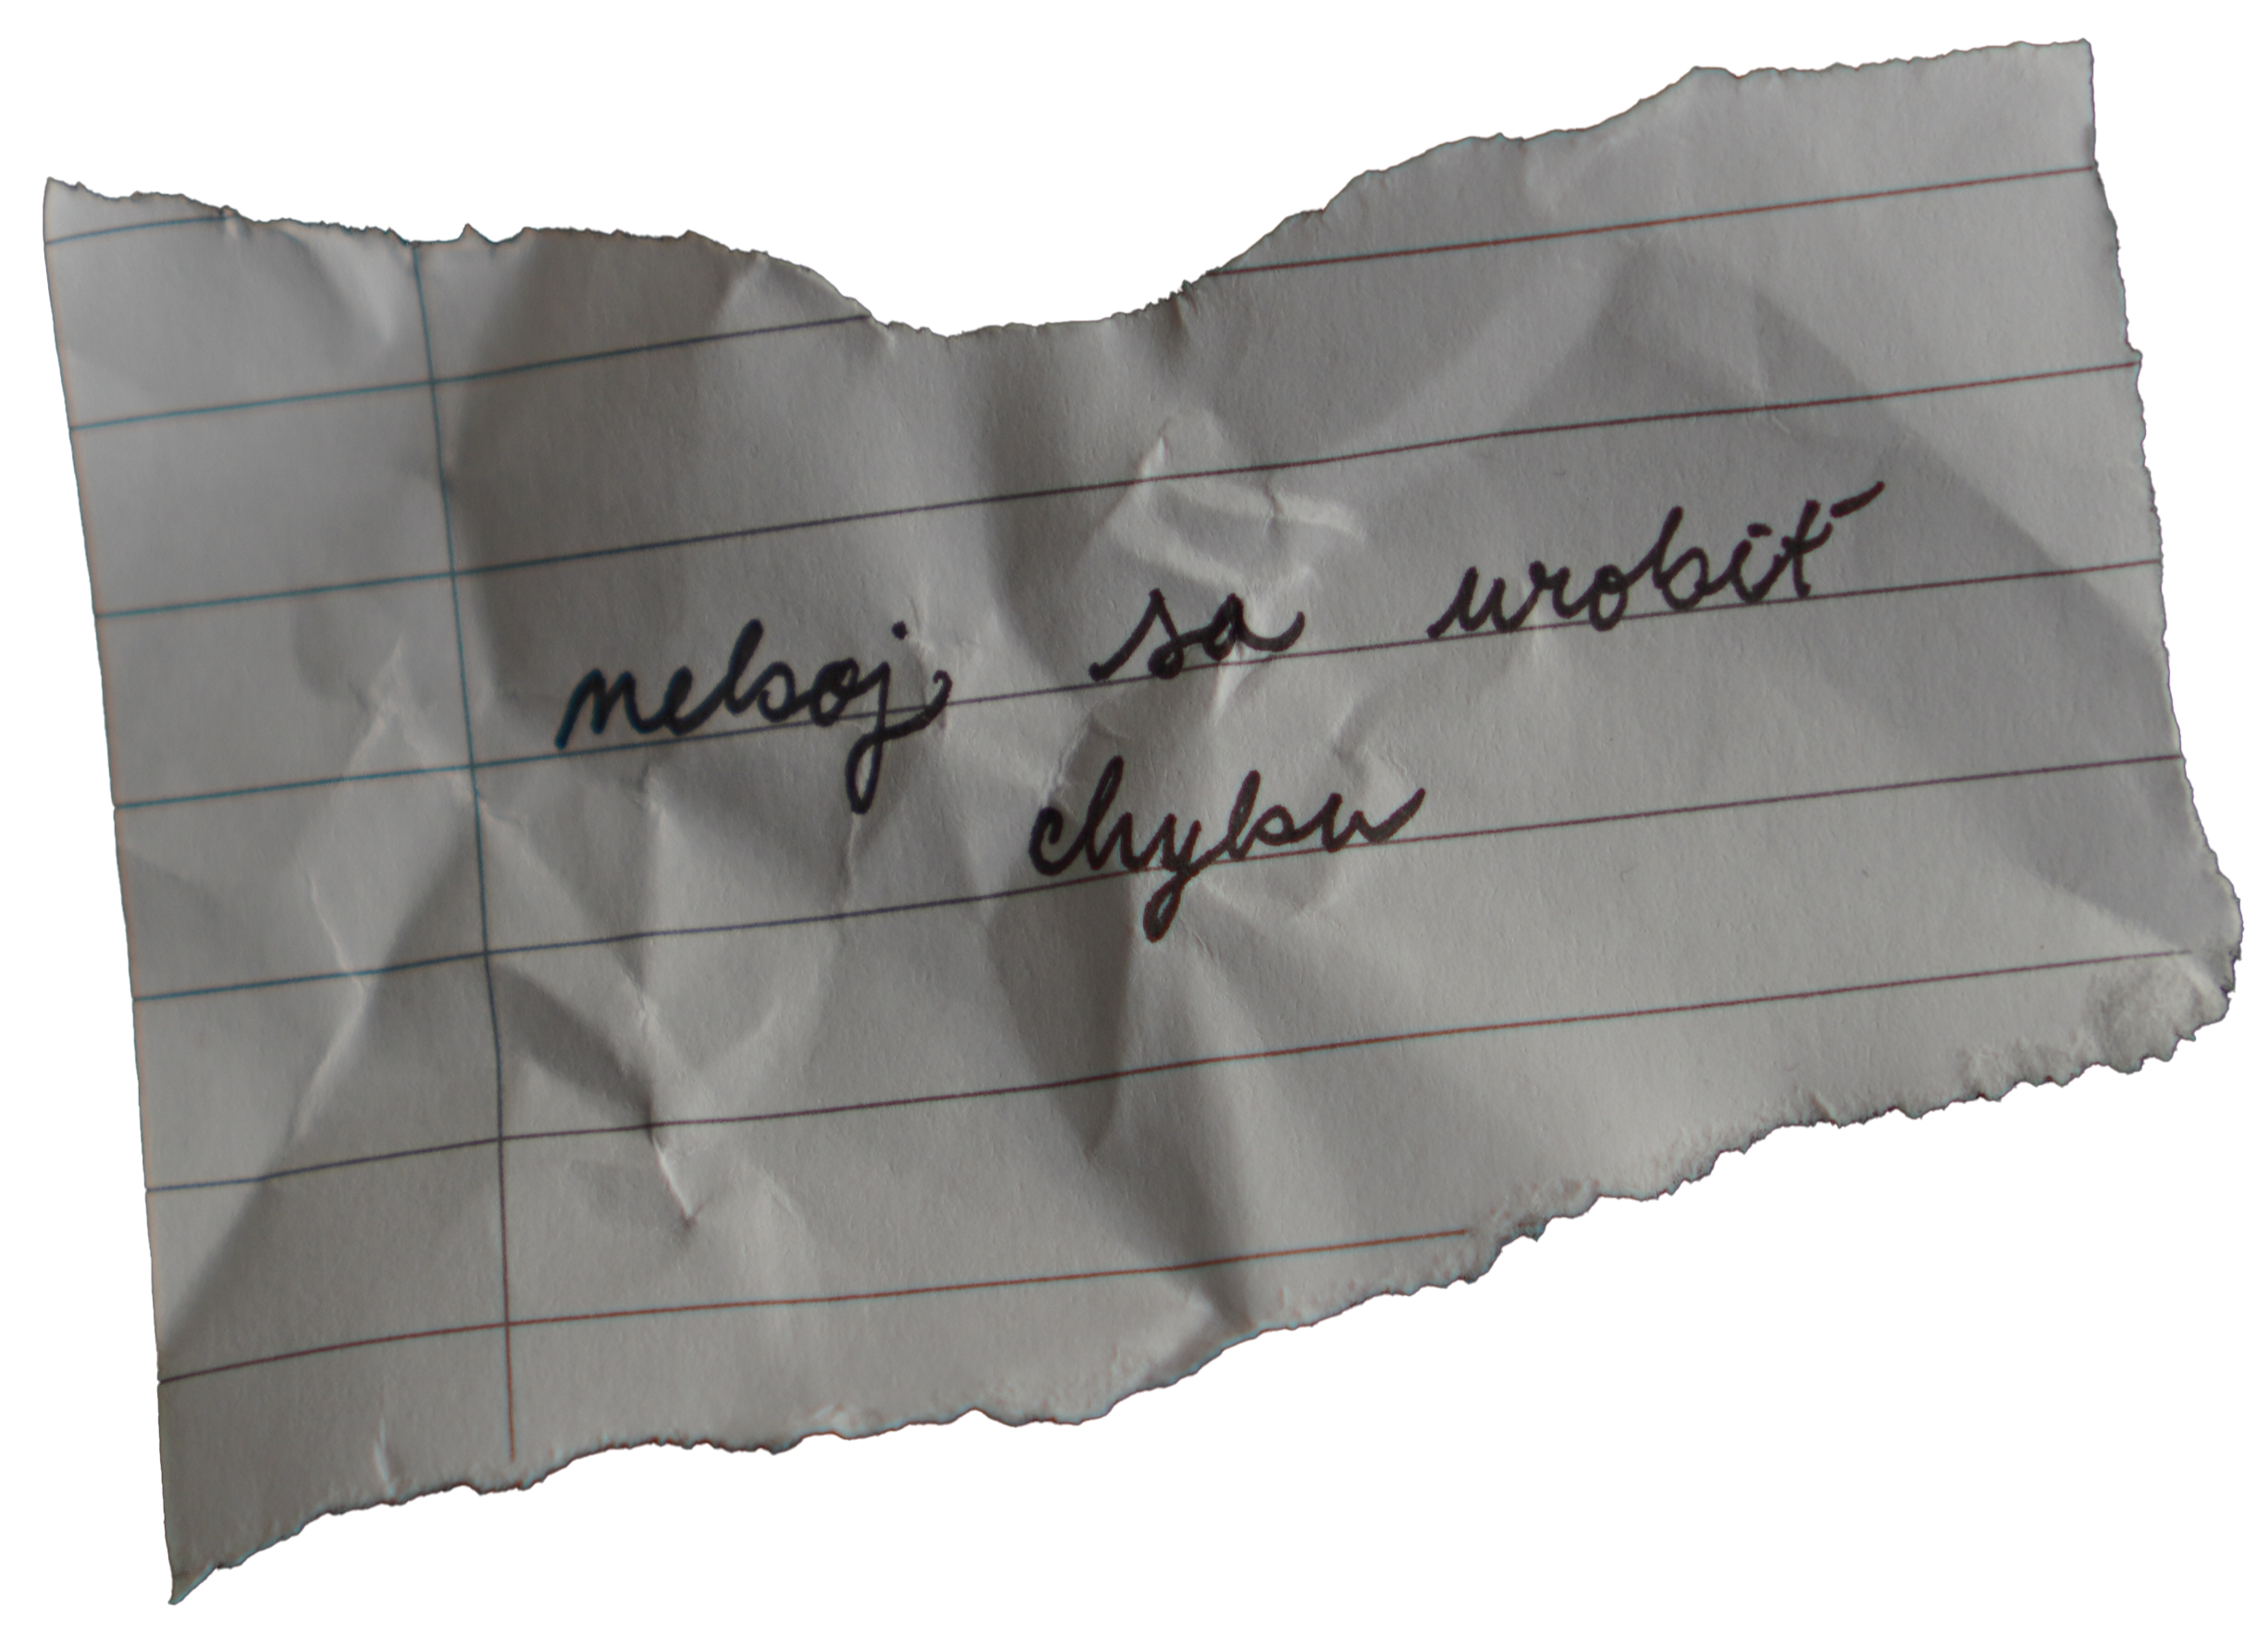 neboj sa urobiť
chybu